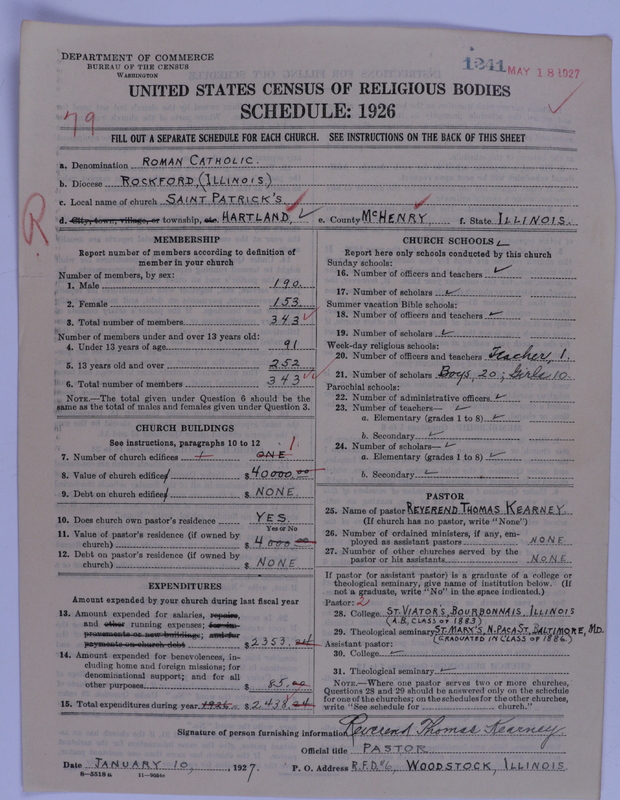 DEPARTMENT OF COMMERCE
BUREAU OF THE CENSUS
WASHINGTON
1241 MAY 18 1927
UNITED STATES CENSUS OF RELIGIOUS BODIES
SCHEDULE: 1926
79
FILL OUT A SEPARATE SCHEDULE FOR EACH CHURCH. SEE INSTRUCTIONS ON THE BACK OF THIS SHEET
a. Denomination ROMAN CATHOLIC.
b. Diocese ROCKFORD, (ILLINOIS)
c. Local name of church SAINT PATRICK'S
d. City, town, village, or township, etc. HARTLAND, e. County McHENRY, f. State ILLINOIS.
R
MEMBERSHIP
Report number of members according to definition of
member in your church
Number of members, by sex:
1. Male 190.
2. Female 153.
3. Total number of members 343
Number of members under and over 13 years old:
4. Under 13 years of age 91
5. 13 years old and over 252
6. Total number of members 343
NOTE.—The total given under Question 6 should be the
same as the total of males and females given under Question 3.
CHURCH BUILDINGS
See instructions, paragraphs 10 to 12 1
7. Number of church edifices 1 ONE
8. Value of church edifice $40000.00
9. Debt on church edifice $ NONE
10. Does church own pastor's residence YES.
Yes or No
11. Value of pastor's residence (if owned by
church) $4000.00
12. Debt on pastor's residence (if owned by
church) $ NONE
EXPENDITURES
Amount expended by church during last fiscal year
13. Amount expended for salaries, repairs,
and other running expenses; for im-
provements or new buildings; and for
payments on church debt $2353.24
14. Amount expended for benevolences, in-
cluding home and foreign missions; for
denominational support; and for all
other purposes $85.00
15. Total expenditures during year 1926 $2,438.24
CHURCH SCHOOLS
Report here only schools conducted by this church
Sunday schools:
16. Number of officers and teachers
17. Number of scholars
Summer vacation Bible schools:
18. Number of officers and teachers
19. Number of scholars
Week-day religious schools:
20. Number of officers and teachers Teacher, 1.
21. Number of scholars Boys, 20; Girls 10.
Parochial schools:
22. Number of administrative officers
23. Number of teachers—
a. Elementary (grades 1 to 8)
b. Secondary
24. Number of scholars—
a. Elementary (grades 1 to 8)
b. Secondary
PASTOR
25. Name of pastor REVEREND THOMAS KEARNEY
(If church has no pastor, write "None")
26. Number of ordained ministers, if any, em-
ployed as assistant pastors NONE
27. Number of other churches served by the
pastor or his assistants NONE
If pastor (or assistant pastor) is a graduate of a college or
theological seminary, give name of institution below. (If
not a graduate, write "No" in the space indicated.)
Pastor: 2
28. College ST. VIATOR'S, BOURBONNAIS, ILLINOIS
(A.B. CLASS OF 1883)
29. Theological seminary ST. MARY'S, N. PACA ST. BALTIMORE, MD.
(GRADUATED IN CLASS OF 1886)
Assistant pastor:
30. College
31. Theological seminary
NOTE.—Where one pastor serves two or more churches,
Questions 28 and 29 should be answered only on the schedule
for one of the churches; on the schedules for the other churches,
write "See schedule for church."
Signature of person furnishing information Reverend Thomas Kearney.
Official title PASTOR
Date JANUARY 10, 1927. P. O. Address R.F.D. #6, WOODSTOCK, ILLINOIS.